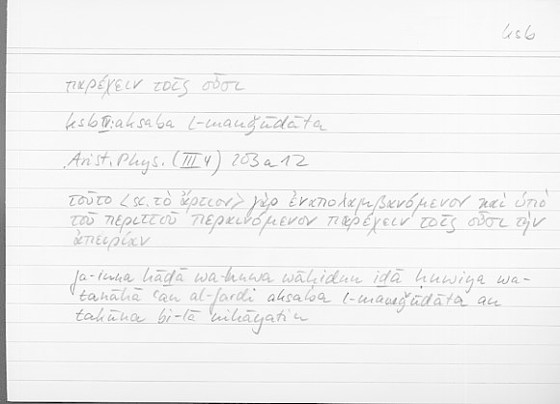 ksb
παρέχειν τοῖς οὖσι
ksb IV: aksaba l-mauǧūdāta
Arist. Phys. (III 4) 203 a 12
τοῦτο <sc. τὸ ἄρτιον> γὰρ ἐναπολαμβανόμενον καὶ ὑπὸ
τοῦ περιττοῦ περαινόμενον παρέχειν τοῖς οὖσι τὴν
ἀπειρίαν
fa-inna hāḏā wa-huwa wāḥidun iḏā huwiya wa-
tanāhā ʿan al-fardi aksaba l-mauǧūdāta an
takūna bi-lā nihāyatin